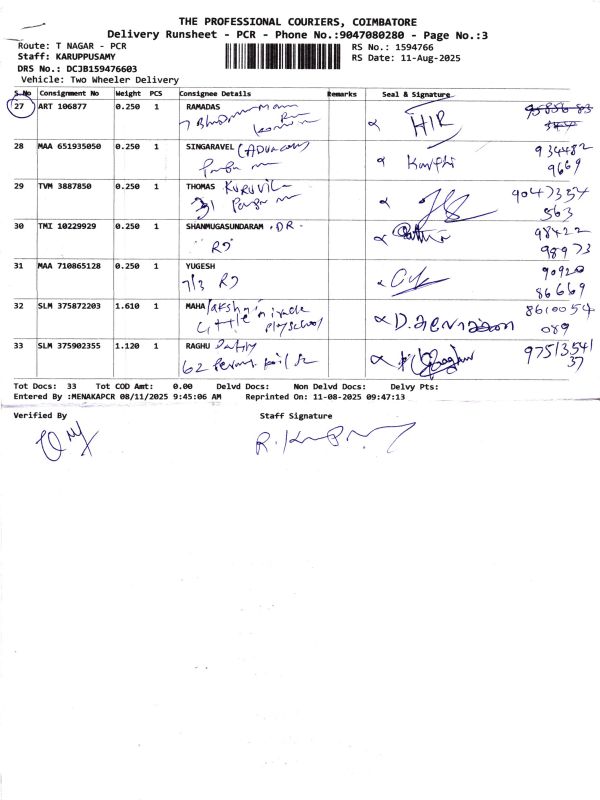 THE PROFESSIONAL COURIERS, COIMBATORE
Delivery Runsheet - PCR - Phone No.:9047080280 - Page No.:3
Route: T NAGAR - PCR
RS No.: 1594766
Staff: KARUPPUSAMY
RS Date: 11-Aug-2025
DRS No.: DCJB159476603
Vehicle: Two Wheeler Delivery
S No Consignment No Weight PCS Consignee Details Remarks Seal & Signature
27 ART 106877 0.250 1 RAMADAS
HIR
28 MAA 651935050 0.250 1 SINGARAVEL (ADVACOM 934482
9669
29 TVM 3887850 0.250 1 THOMAS KURUVIL 9047354
31 563
30 TMI 10229929 0.250 1 SHANMUGASUNDARAM . DR. 98422
RD 98973
31 MAA 710865128 0.250 1 YUGESH 90920
7/3 RD 86669
32 SLM 375872203 1.610 1 MAHA lakshmi 8610054
Little playschool 089
33 SLM 375902355 1.120 1 RAGHU 97513541
62 37
Tot Docs: 33 Tot COD Amt: 0.00 Delvd Docs: Non Delvd Docs: Delvy Pts:
Entered By :MENAKAPCR 08/11/2025 9:45:06 AM Reprinted On: 11-08-2025 09:47:13
Verified By Staff Signature